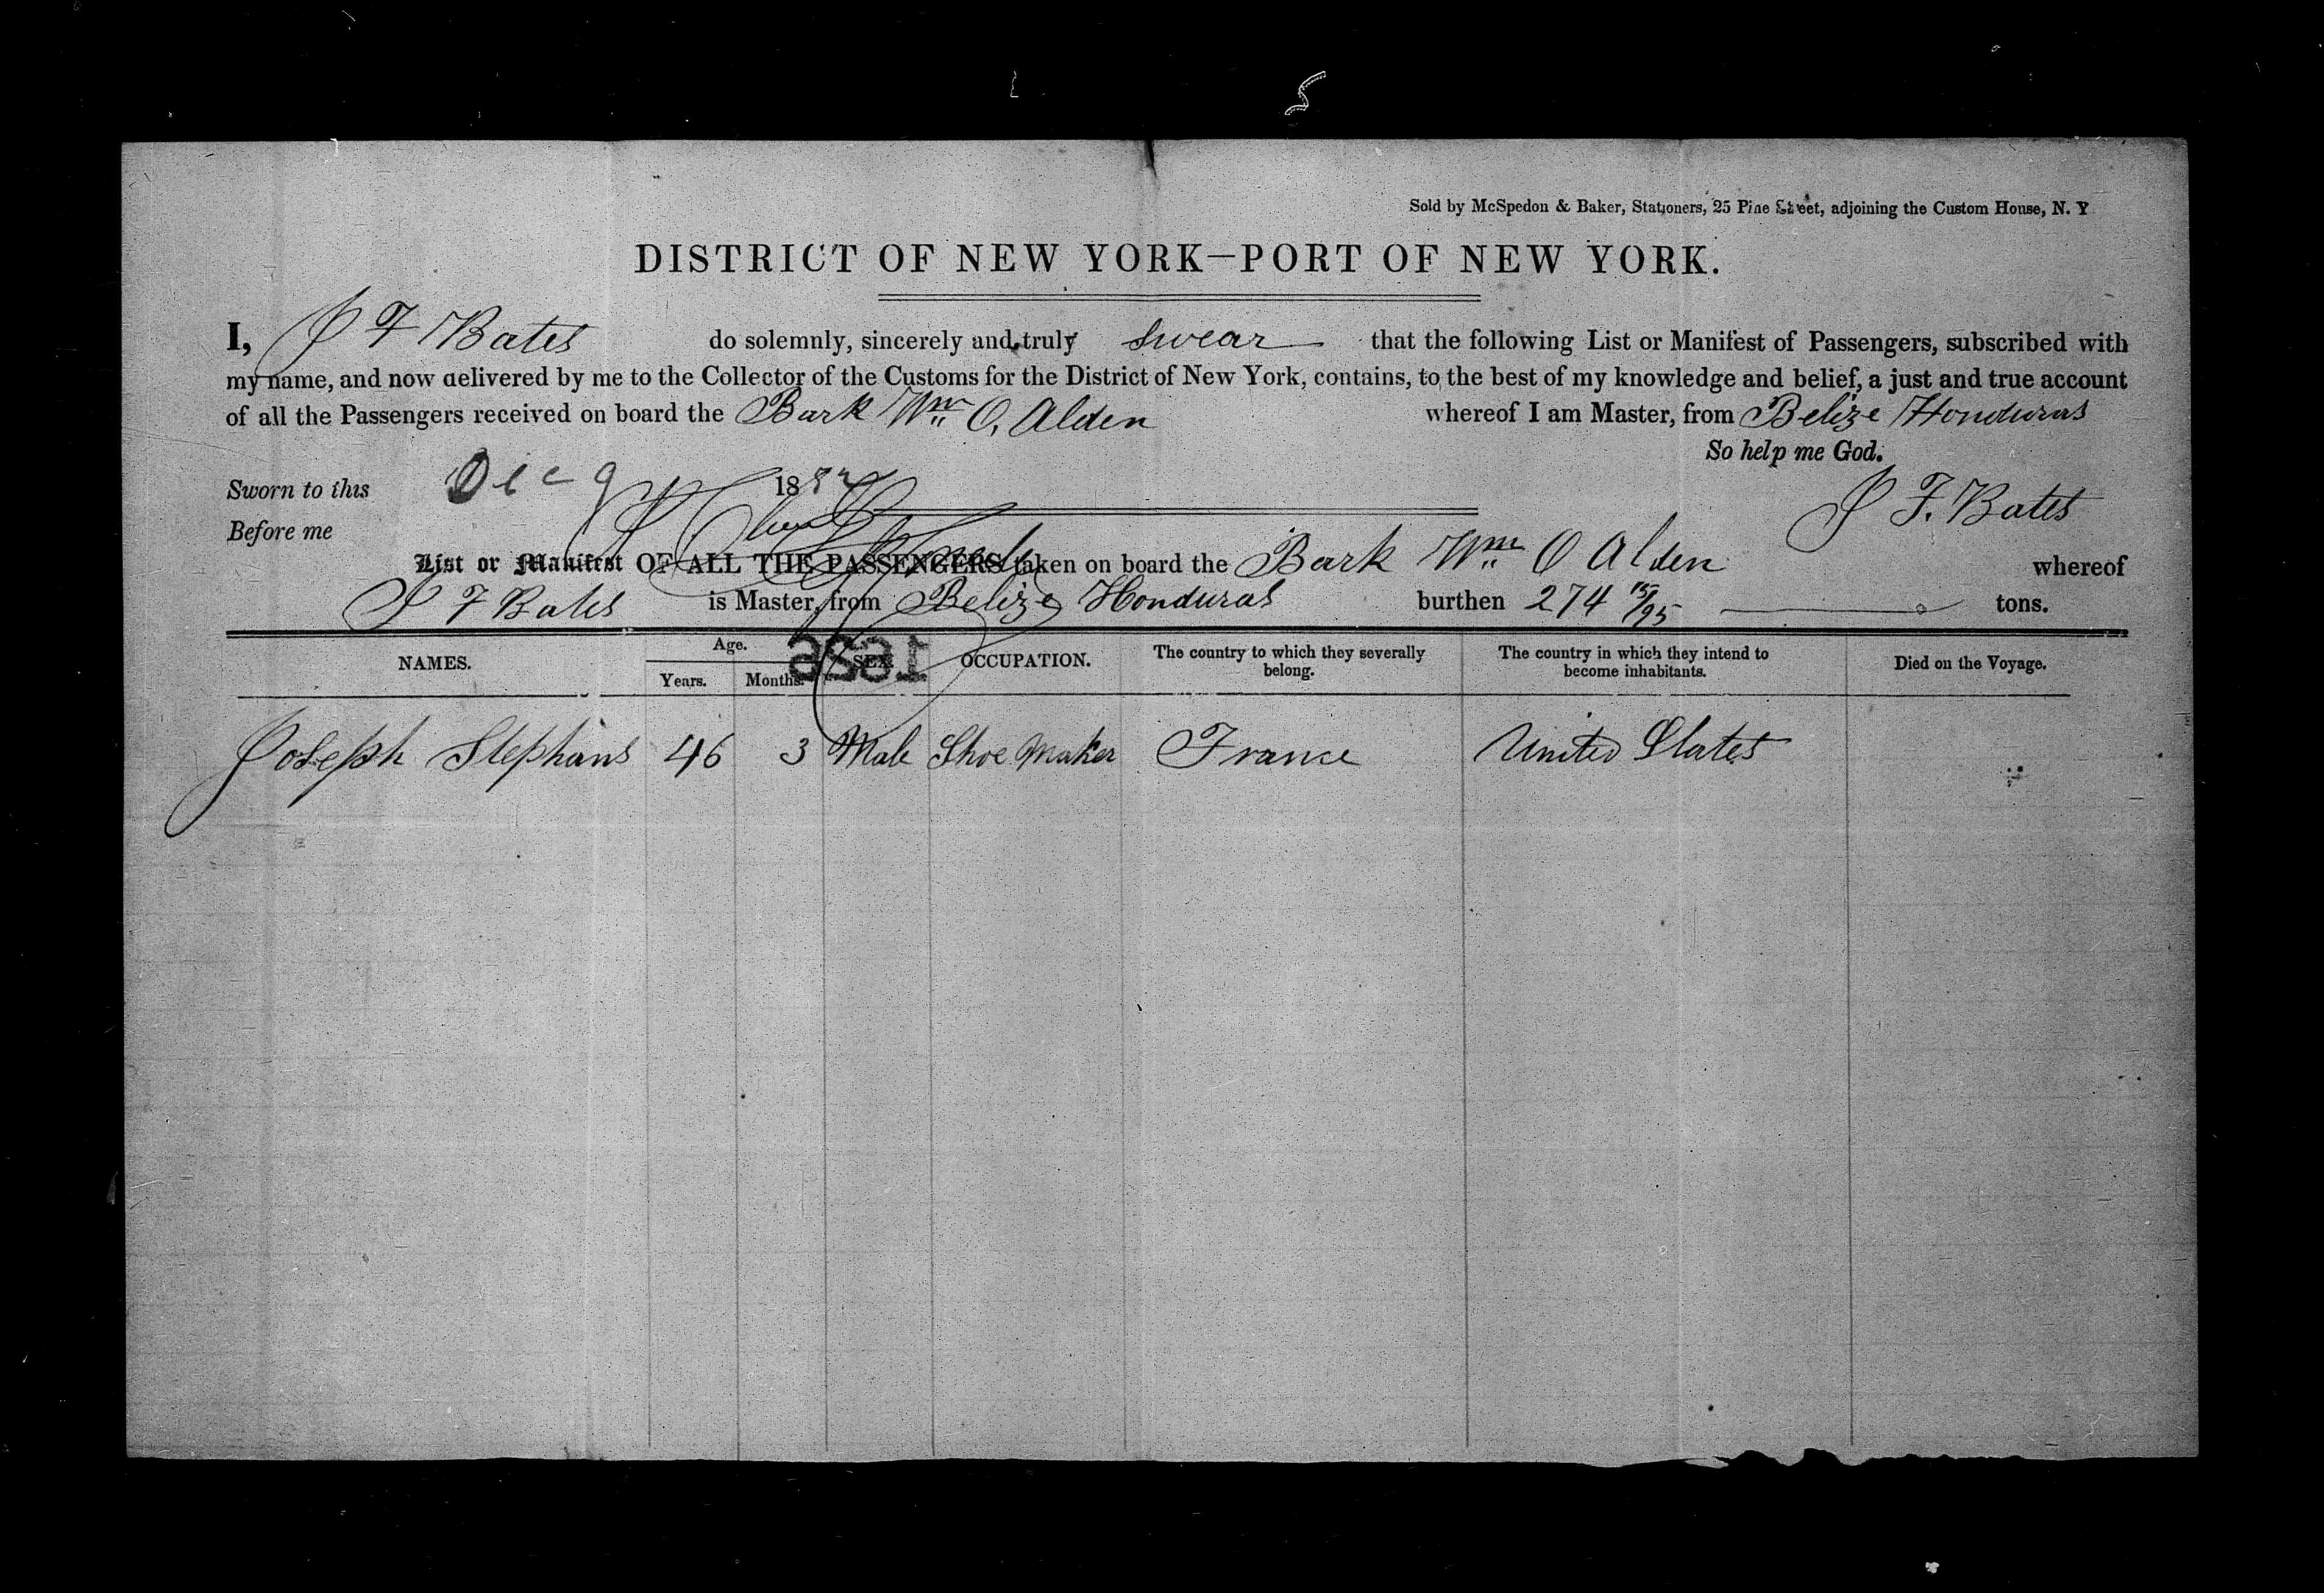 5
Sold by McSpedon & Baker, Stationers, 25 Pine Street, adjoining the Custom House, N. Y
DISTRICT OF NEW YORK—PORT OF NEW YORK.
I, J F Bates do solemnly, sincerely and truly swear that the following List or Manifest of Passengers, subscribed with
my name, and now delivered by me to the Collector of the Customs for the District of New York, contains, to the best of my knowledge and belief, a just and true account
of all the Passengers received on board the Bark Wm O. Alden whereof I am Master, from Belize Honduras
So help me God.
Sworn to this Dec 9 18
J F. Bates
Before me
List or Manifest OF ALL THE PASSENGERS taken on board the Bark Wm O Alden whereof
J F Bates is Master, from Belize Honduras burthen 274 15/95 tons.
NAMES. Age. Years. Months. SEX. OCCUPATION. The country to which they severally belong. The country in which they intend to become inhabitants. Died on the Voyage.
Joseph Stephans 46 3 Male Shoe Maker France United States